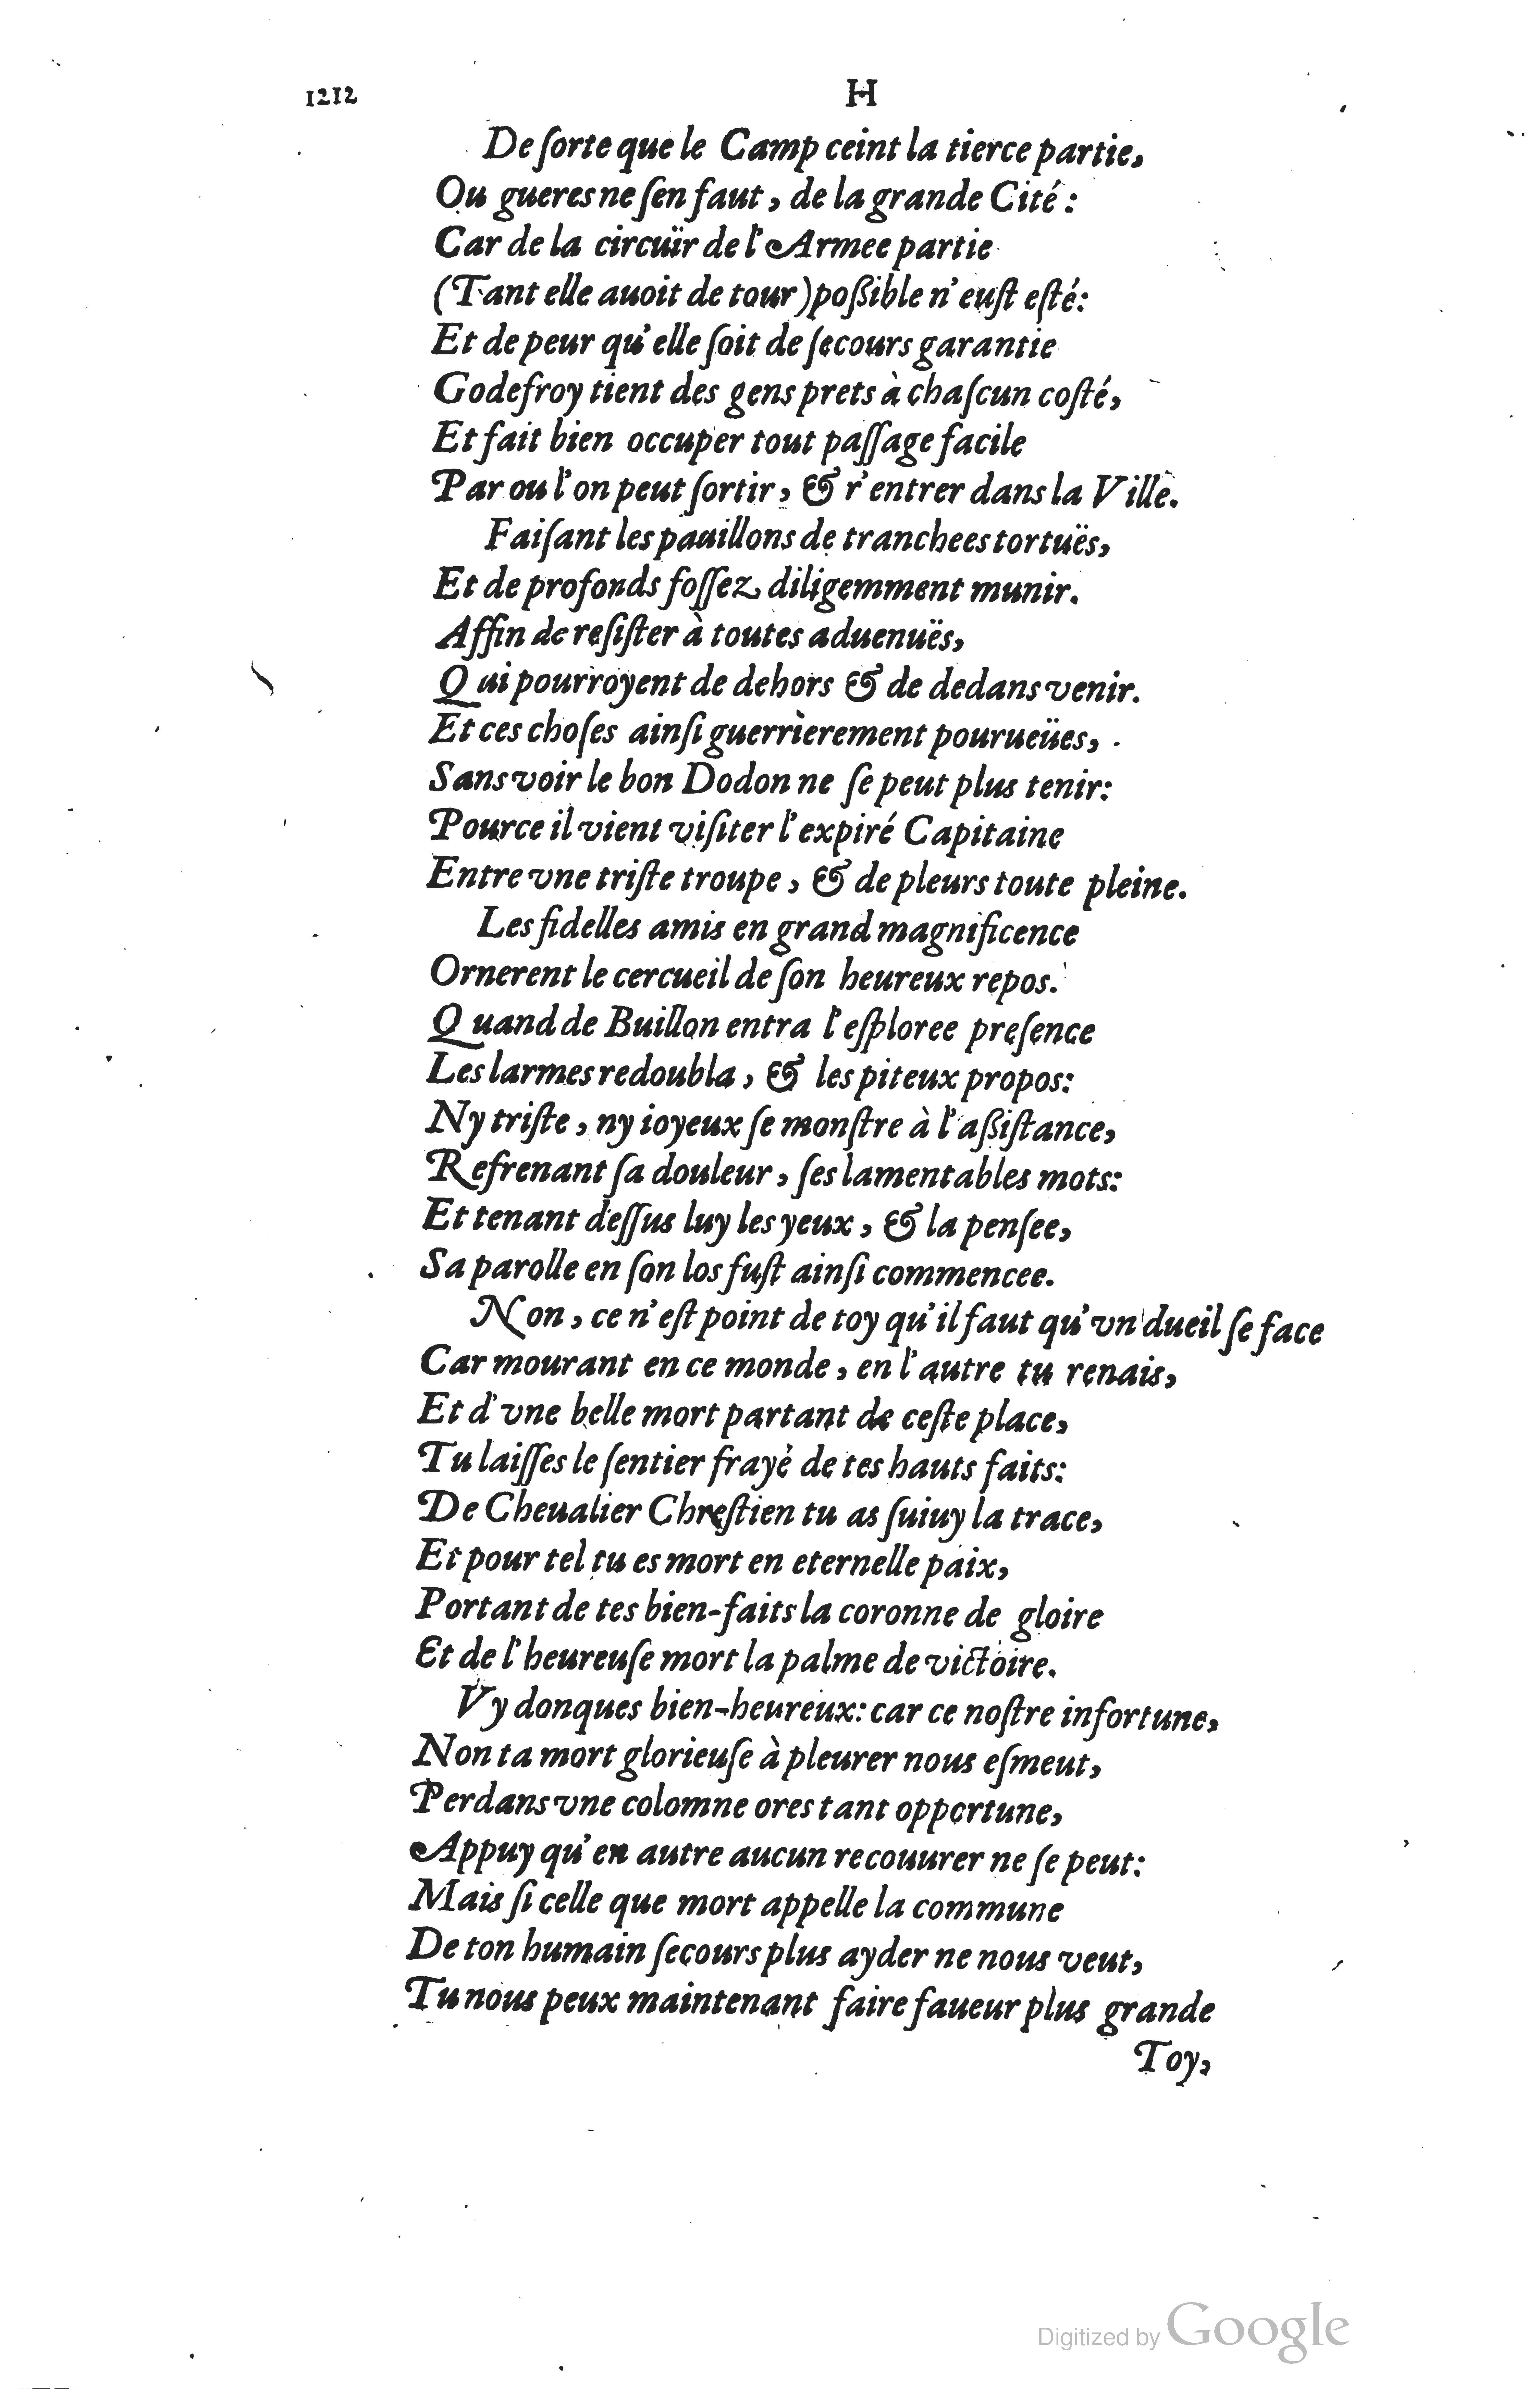 1212 H
De ſorte que le Camp ceint la tierce partie,
Ou gueres ne ſen faut, de la grande Cité:
Car de la circuïr de l'Armee partie
(Tant elle auoit de tour) poßible n'euſt eſté:
Et de peur qu'elle ſoit de ſecours garantie
Godefroy tient des gens prets à chaſcun coſté,
Et fait bien occuper tout paſſage facile
Par ou l'on peut ſortir, & r'entrer dans la Ville.
Faiſant les pauillons de tranchees tortuës,
Et de profonds foſſez diligemment munir.
Affin de reſiſter à toutes aduenuës,
Qui pourroyent de dehors & de dedans venir.
Et ces choſes ainſi guerrierement pourueües,
Sans voir le bon Dodon ne ſe peut plus tenir:
Pource il vient viſiter l'expiré Capitaine
Entre vne triſte troupe, & de pleurs toute pleine.
Les fidelles amis en grand magnificence
Ornerent le cercueil de ſon heureux repos.
Quand de Buillon entra l'eſploree preſence
Les larmes redoubla, & les piteux propos:
Ny triſte, ny ioyeux ſe monſtre à l'aßiſtance,
Refrenant ſa douleur, ſes lamentables mots:
Et tenant deſſus luy les yeux, & la penſee,
Sa parolle en ſon los fuſt ainſi commencee.
Non, ce n'eſt point de toy qu'il faut qu'vn dueil ſe face
Car mourant en ce monde, en l'autre tu renais,
Et d'vne belle mort partant de ceſte place,
Tu laiſſes le ſentier frayè de tes hauts faits:
De Cheualier Chreſtien tu as ſuiuy la trace,
Et pour tel tu es mort en eternelle paix,
Portant de tes bien-faits la coronne de gloire
Et de l'heureuſe mort la palme de victoire.
Vy donques bien-heureux: car ce noſtre infortune,
Non ta mort glorieuſe à pleurer nous eſmeut,
Perdans vne colomne ores tant opportune,
Appuy qu'en autre aucun recouurer ne ſe peut:
Mais ſi celle que mort appelle la commune
De ton humain ſecours plus ayder ne nous veut,
Tu nous peux maintenant faire faueur plus grande
Toy,
Digitized by Google